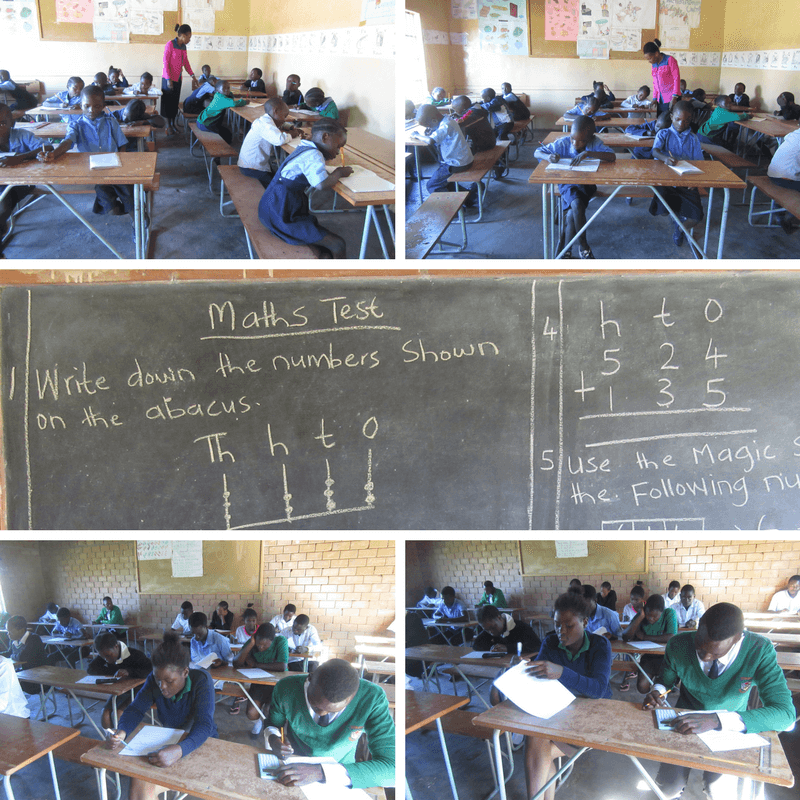 Maths Test
1 Write down the numbers shown
on the abacus.
Th h t O
4
h t O
5 2 4
+ 1 3 5
5 Use the Magic S
the Following nu